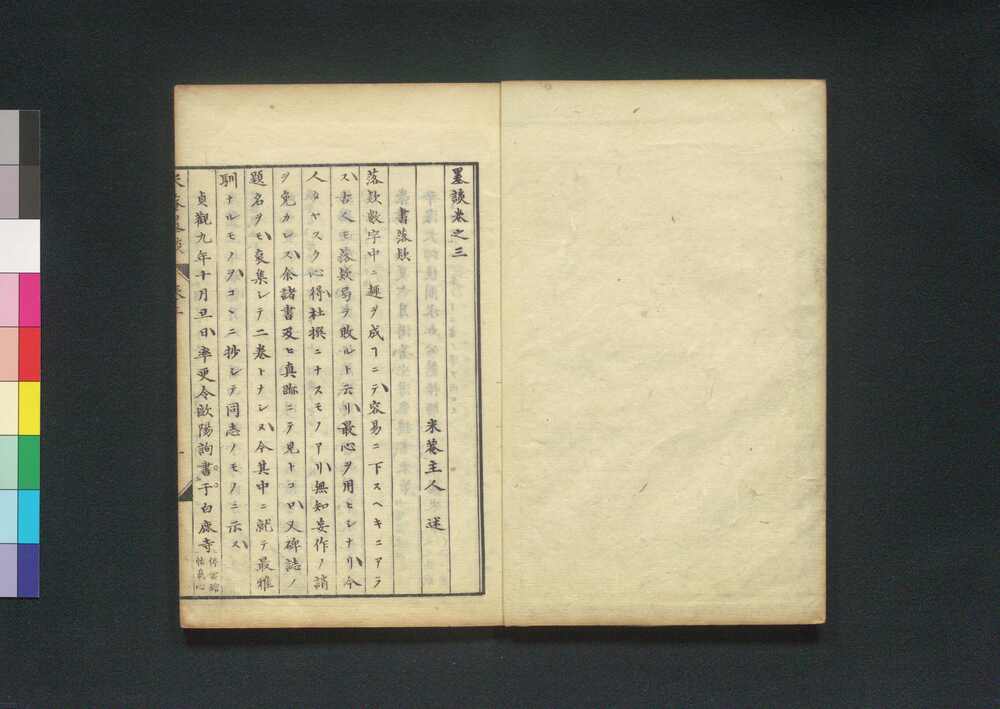 墨談卷之三
米菴主人 述
書落欵
落欵數字中ニ趣ヲ成ヿニテ容易ニ下スヘキニアラ
ス古人モ落欵局ヲ敗ルト云リ最心ヲ用ヒシナリ今
人タヤスク心得杜撰ニナスモノアリ無知妄作ノ誚
ヲ免カレス余諸書及ヒ真跡ニテ見トコロ又碑誌ノ
題名ヲモ裒集シテ二卷トナシヌ今其中ニ就テ最雅
馴ナルモノヲコヽニ抄シテ同志ノモノニ示ス
貞觀九年十月旦日率更令歐陽詢書于白鹿寺